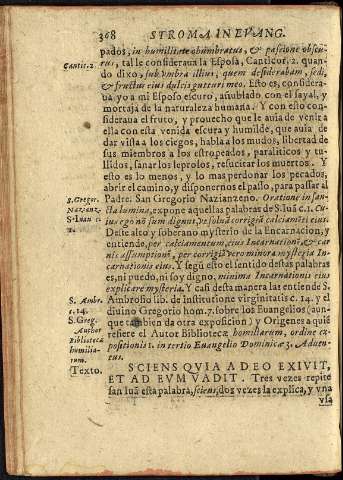 368 STROMA IN EVANG.
pados, in humilitate obumbratus, & passione obscu-
rus, tal le consideraua la Esposa, Canticor. 2. quan-
Cantic. 2.
do dixo, sub vmbra illius, quem desiderabam, sedi,
& fructus eius dulcis gutturi meo. Esto es, considera-
ua yo a mi Esposo escuro, assublado con el sayal, y
mortaja de la naturaleza humana. Y con esto con-
sideraua el fruto, y prouecho que le auia de venir a
ella con esta venida escura y humilde, que auia de
dar vista a los ciegos, habla a los mudos, libertad de
sus miembros a los estropeados, paraliticos, y tu-
llidos, sanar los leprosos, resucitar los muertos. Y
esto es lo menos, y lo mas perdonar los pecados,
abrir el camino, y disponernos el passo, para passar al
S. Gregor.
Nazianz.
S. Iuan 1.
Padre. San Gregorio Nazianzeno. Oratione in san-
cta lumina, expone aquellas palabras de S. Iuã c. 1. Cu-
ius ego nõ sum dignus, vt soluã corrigiã calciamẽti eius.
Deste alto y soberano mysterio de la Encarnacion, y
entiende, per calciamentum, eius Incarnationẽ, & car-
nis assumptionẽ, per corrigiã vero minora mysteria In-
carnationis eius. Y segũ esto el sentido destas palabras
es, ni puedo, ni soy digno, minima Incarnationis eius
explicare mysteria. Y casi desta manera las entiende S.
S. Ambr.
c. 14.
S. Greg.
Author
Bibliotecæ
humilia-
rum.
Ambrosio lib. de Institutione virginitatis c. 14. y el
diuino Gregorio hom. 7. sobre los Euangelios (aun-
que tambien da otra exposicion) y Origenes a quiẽ
refiere el Autor Bibliotecæ homiliarum, ordine ex-
positionis 1. in tertio Euangelio Dominicæ 3. Aduen-
tus.
Texto.
SCIENS QVIA A DEO EXIVIT,
ET AD EVM VADIT. Tres vezes repite
san Iuã esta palabra, sciens, dos vezes la explica, y vna
vsa